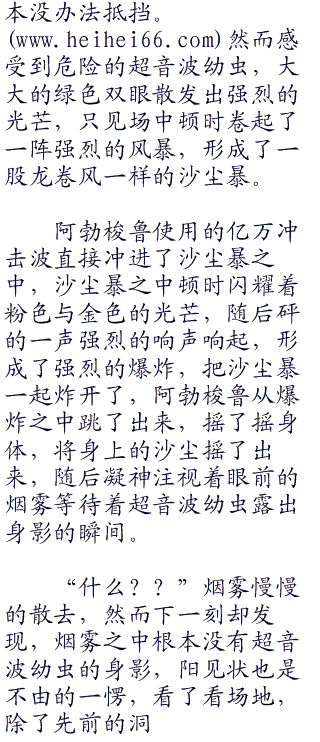 本没办法抵挡。
(www.heihei66.com)然而感
受到危险的超音波幼虫，大
大的绿色双眼散发出强烈的
光芒，只见场中顿时卷起了
一阵强烈的风暴，形成了一
股龙卷风一样的沙尘暴。
阿勃梭鲁使用的亿万冲
击波直接冲进了沙尘暴之
中，沙尘暴之中顿时闪耀着
粉色与金色的光芒，随后砰
的一声强烈的响声响起，形
成了强烈的爆炸，把沙尘暴
一起炸开了，阿勃梭鲁从爆
炸之中跳了出来，摇了摇身
体，将身上的沙尘摇了出
来，随后凝神注视着眼前的
烟雾等待着超音波幼虫露出
身影的瞬间。
“什么？？”烟雾慢慢
的散去，然而下一刻却发
现，烟雾之中根本没有超音
波幼虫的身影，阳见状也是
不由的一愣，看了看场地，
除了先前的洞